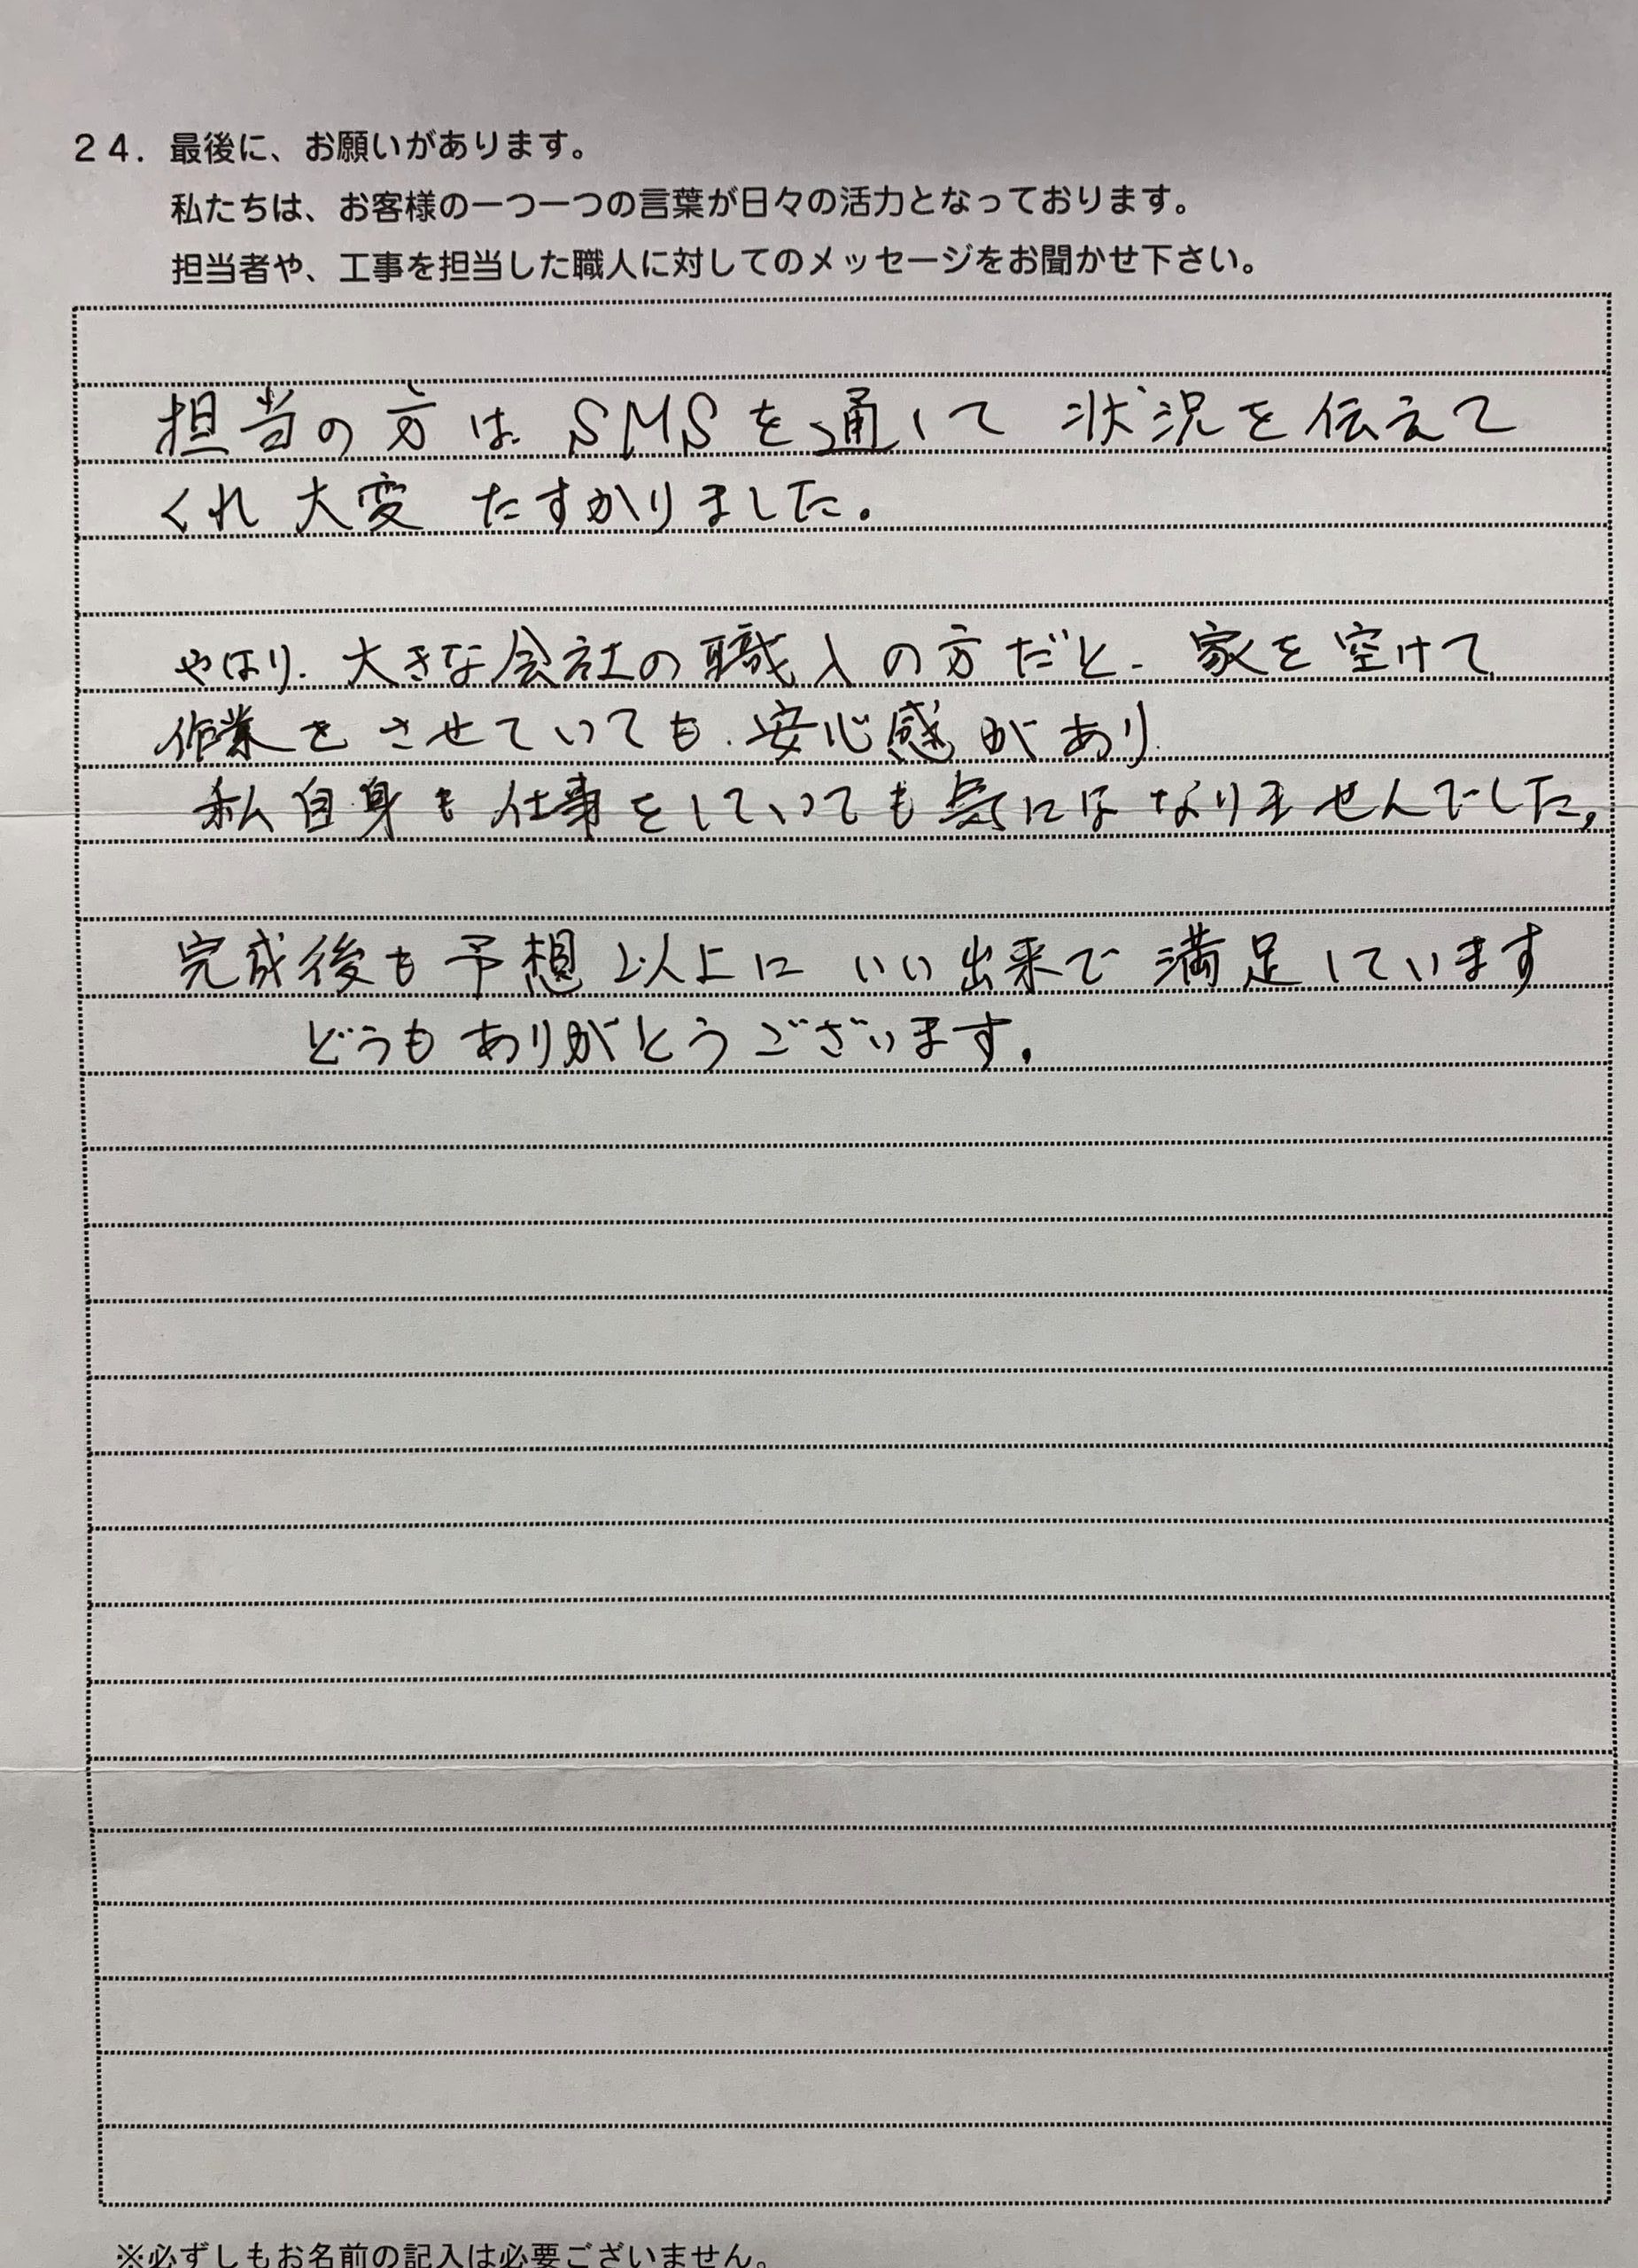 ２４．最後に、お願いがあります。
私たちは、お客様の一つ一つの言葉が日々の活力となっております。
担当者や、工事を担当した職人に対してのメッセージをお聞かせ下さい。
担当の方は SMSを通して 状況を伝えて
くれ 大変 たすかりました。
やはり、大きな会社の職人の方だと、家を空けて
作業をさせていても、安心感があり、
私自身も仕事をしていても気にはなりませんでした。
完成後も予想以上に いい出来で 満足しています
どうもありがとうございます。
※必ずしもお名前の記入は必要ございません。